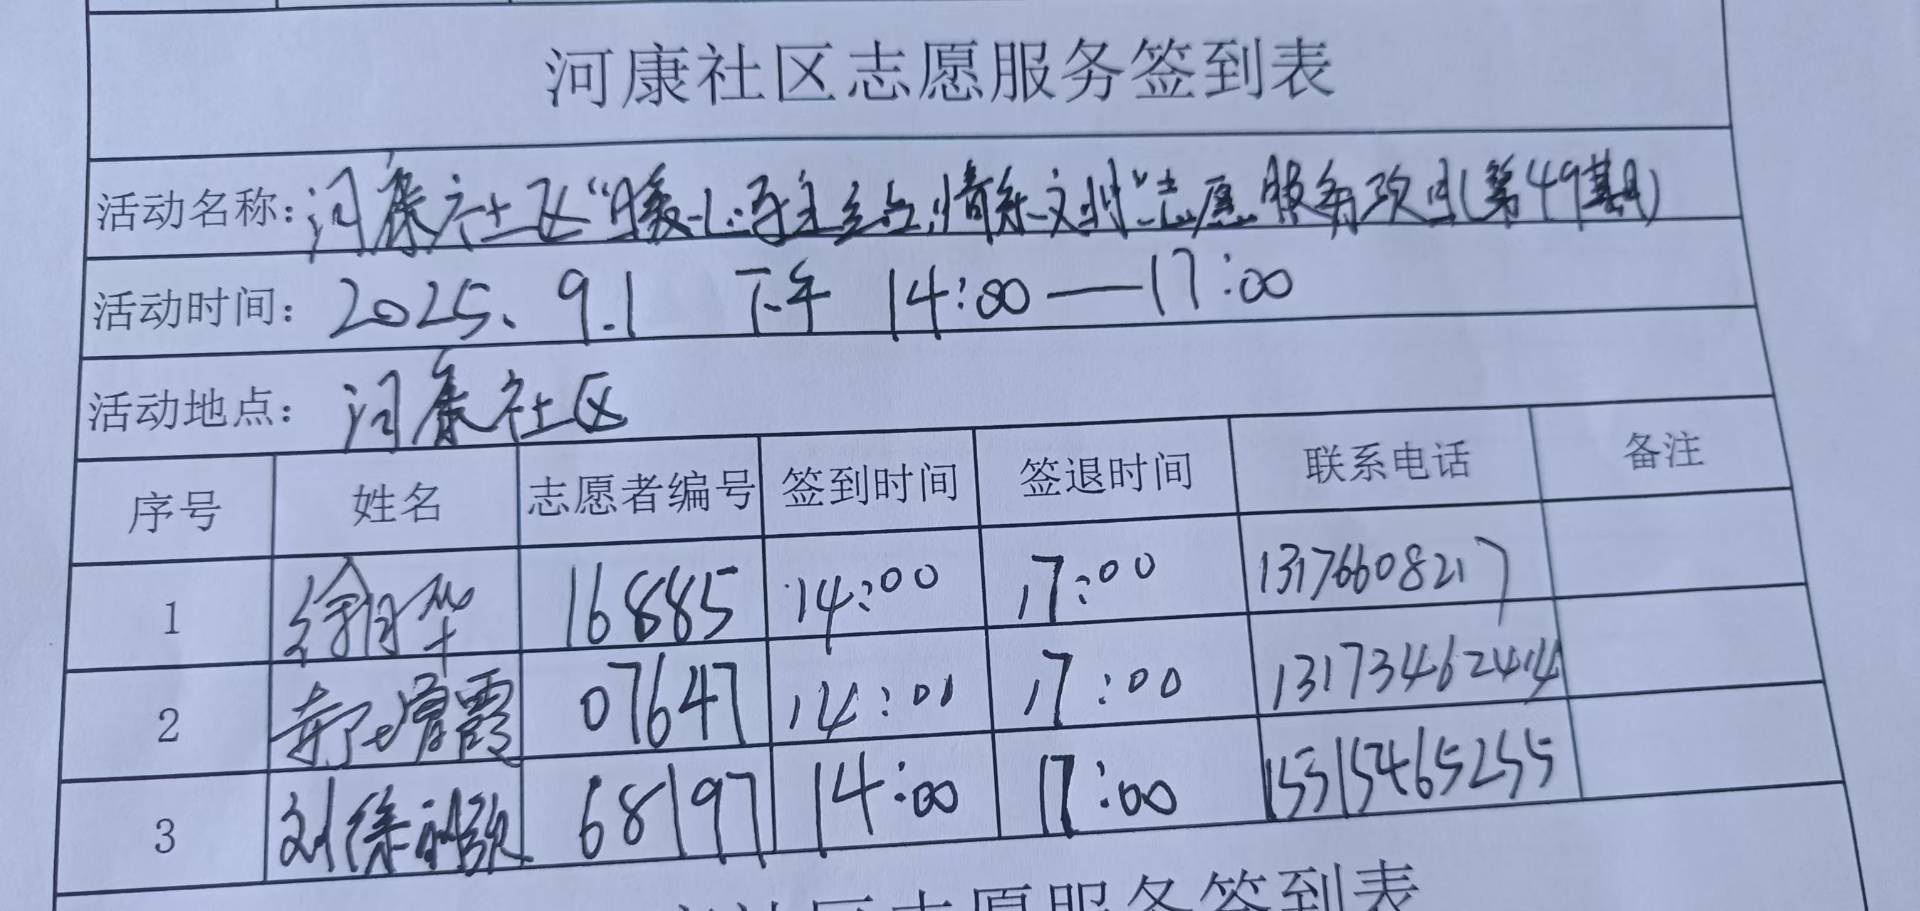 河康社区志愿服务签到表
活动名称：河康社区“暖心 情系 ”志愿服务项目（第49期）
活动时间：2025、9.1 下午 14:00—17:00
活动地点：河康社区
序号 姓名 志愿者编号 签到时间 签退时间 联系电话 备注
1 徐月华 16885 14:00 17:00 13176608217
2 霞 07647 14:00 17:00 13173462414
3 刘徐 68197 14:00 17:00 15315465255
社区志愿服务签到表